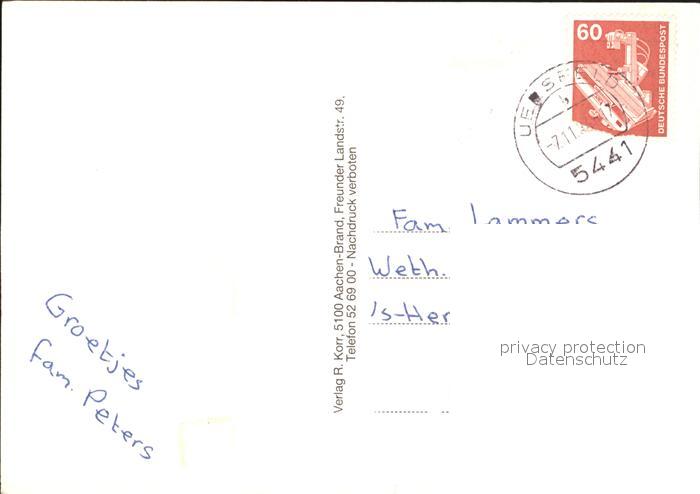 60
DEUTSCHE BUNDESPOST
5441
Verlag R. Korr, 5100 Aachen-Brand, Freunder Landstr. 49,
Telefon 52 69 00 - Nachdruck verboten
Fam. Lammers
Weth.
's-Her
privacy protection
Datenschutz
Groetjes
fam. Peters